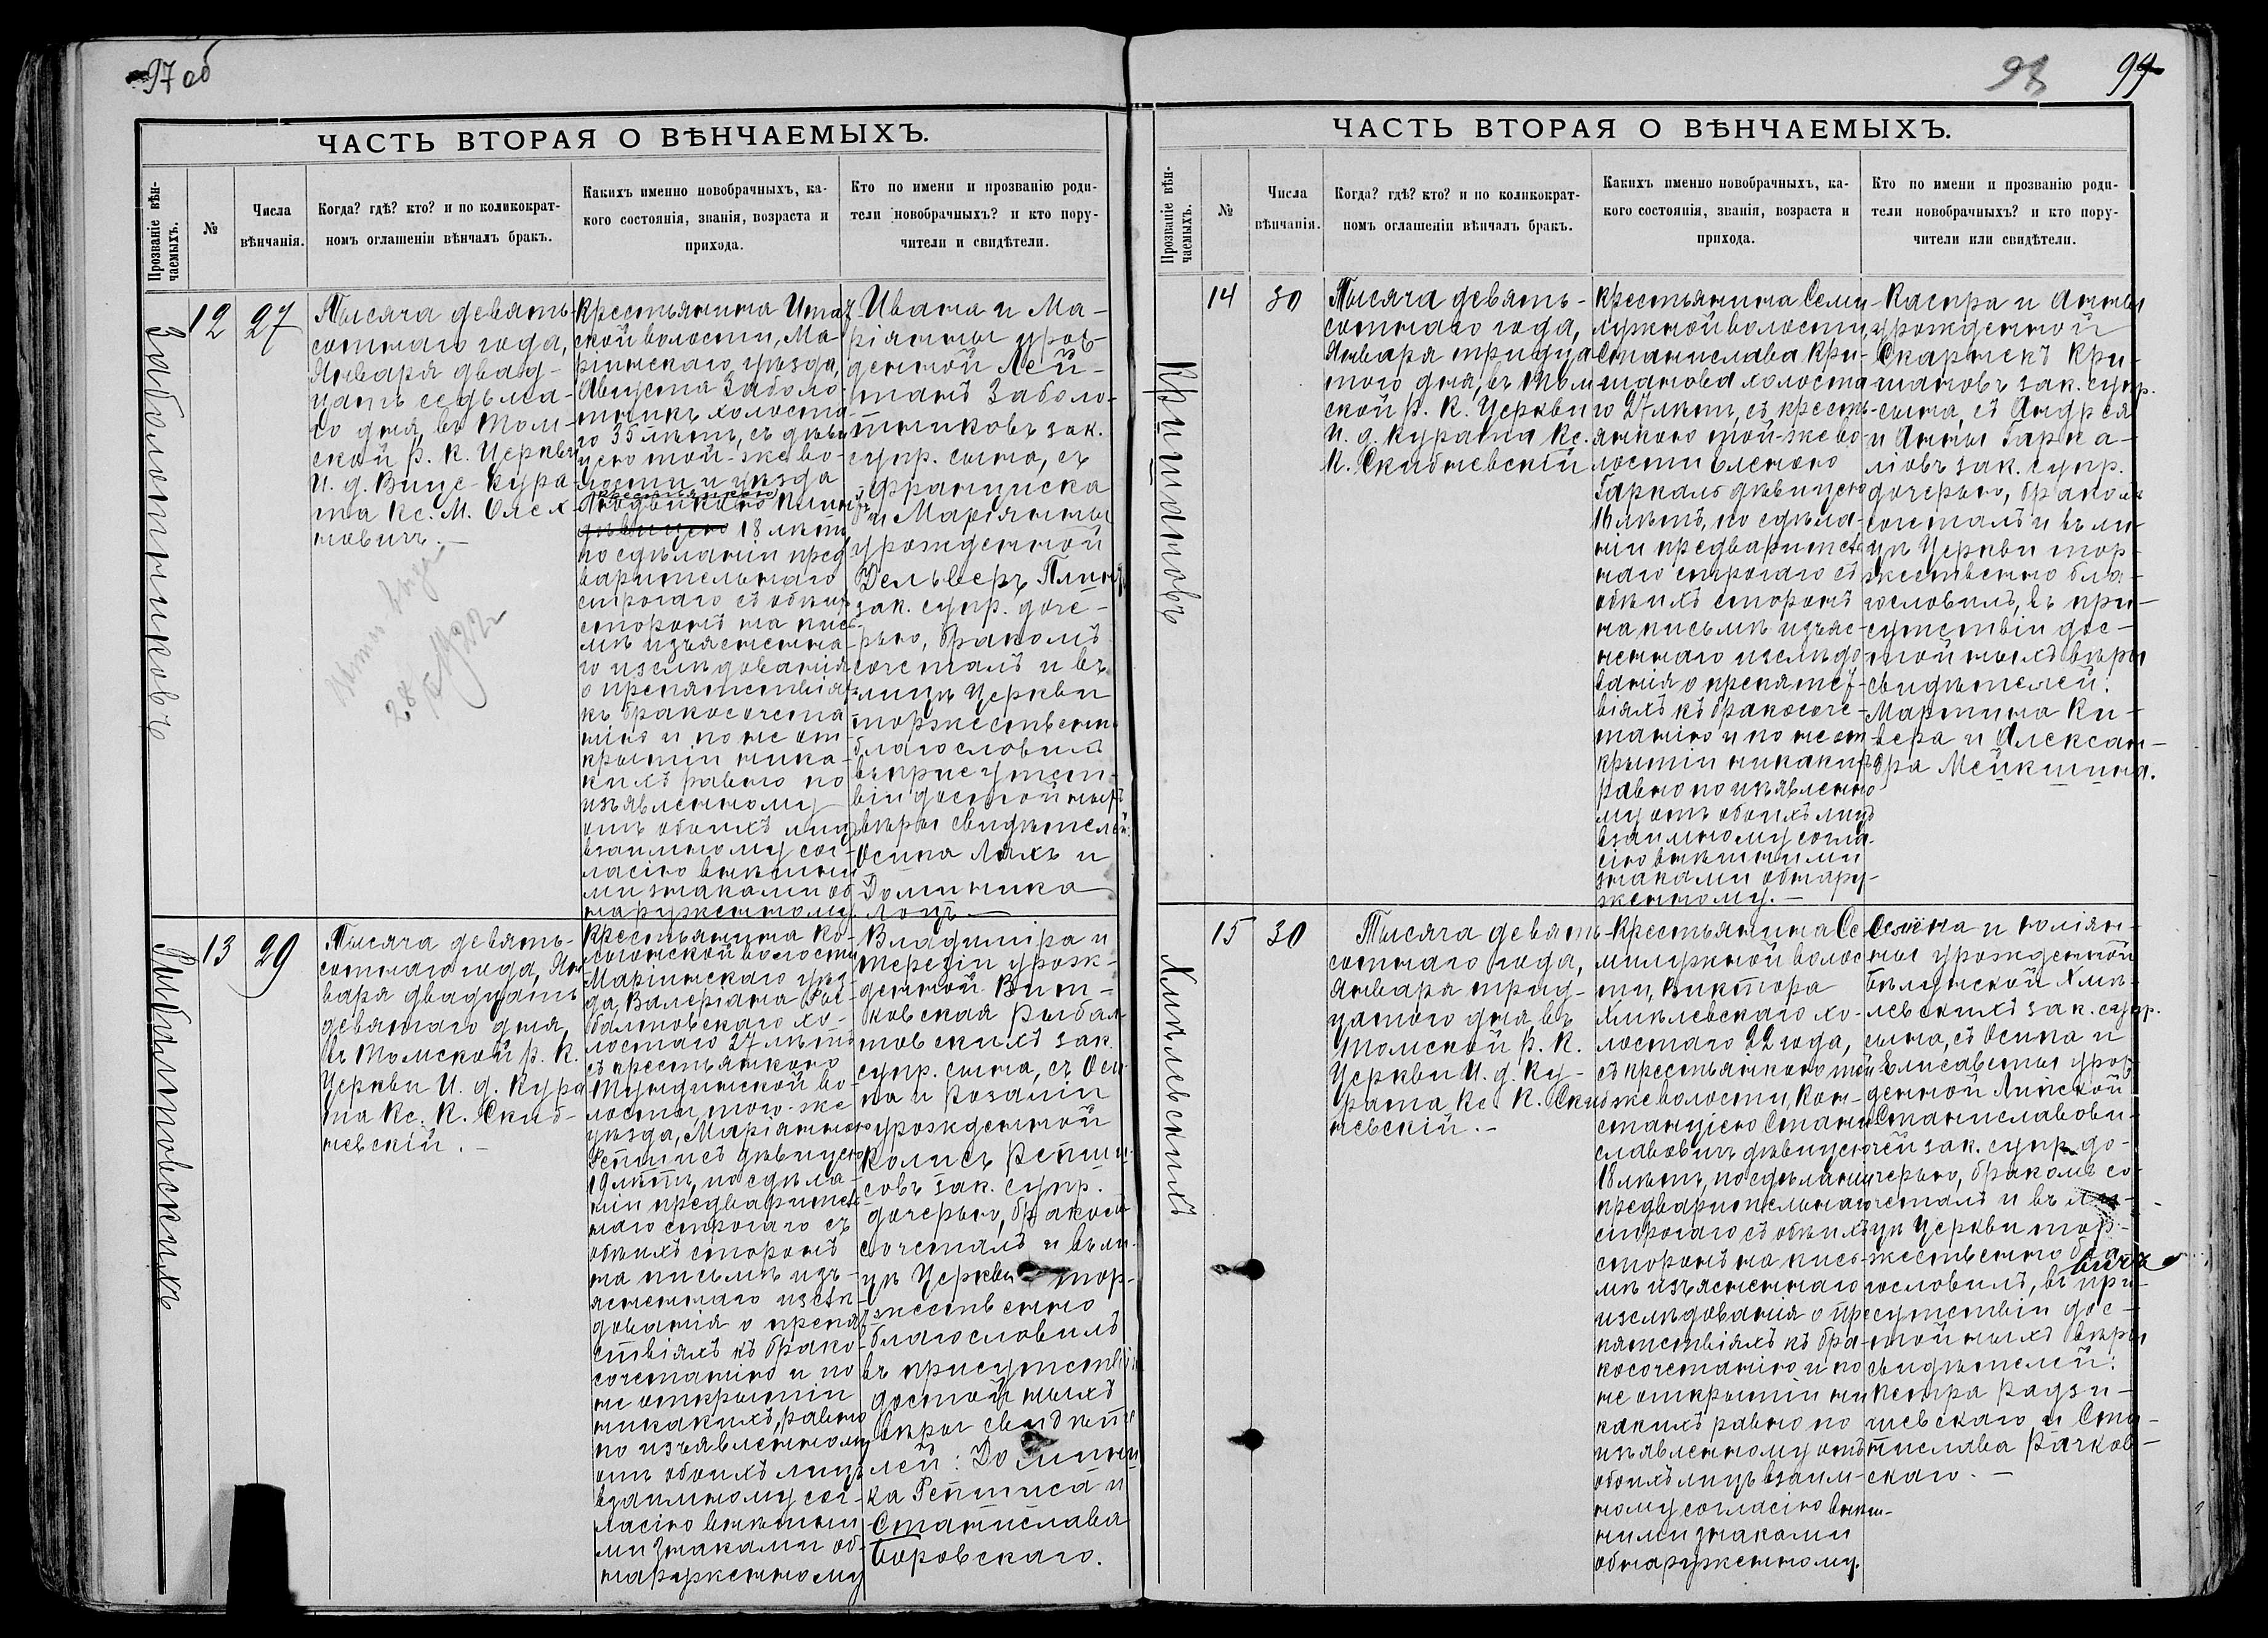 97 об
ЧАСТЬ ВТОРАЯ О ВѢНЧАЕМЫХЪ.
Прозваніе вѣн-
чаемыхъ.
№
Числа
вѣнчанія.
Когда? гдѣ? кто? и по коликократ-
номъ оглашеніи вѣнчалъ бракъ.
Каких именно новобрачныхъ, ка-
кого состоянія, званія, возраста и
прихода.
Кто по имени и прозванію роди-
тели новобрачныхъ? и кто пору-
чители и свидѣтели.
Заболотниковъ
12
27
Тысяча девять
сотнаго года,
Января двад-
цать седьма-
го дня, въ Том-
ской Р. К. Церкви
И. д. Вице-кура
та Кс. М. Олех-
новичъ. —
28
Крестьянина Итат
ской волости, Ма-
ріинскаго уѣзда,
Августа Заболо-
тникъ холоста
го 35 лѣтъ, съ дѣви
цею той-же во-
лости и уѣзда
крестьянкою
дѣвицею 18 лѣтъ
по сдѣланіи пред
варительнаго
строгаго съ обѣихъ
сторонъ на пись
мѣ изъясненна-
го изслѣдованія
о препятствіях
къ бракосочета
нію и по не от
крытіи ника-
кихъ равно по
изъявленному
отъ обоихъ лицъ
взаимному сог-
ласію внѣшни
ми знаками об
наруженному
Ивана и Ма-
ріянны урож-
денной Лей-
манъ Заболо-
тниковъ зак.
супр. сына, съ
Франциска
и Маріянны
урожденной
зак. супр. доче-
рью, бракомъ
сочеталъ и въ
лицѣ Церкви
торжественно
благословилъ
въ присутст-
віи достойныхъ
вѣры свидѣтелей:
Осипа Ляхъ и
Доминика
Лоцъ —
Рыбалтовскихъ
13
29
Тысяча девять-
сотнаго года, Ян
варя двадцать
девятаго дня,
въ Томской Р. К.
Церкви И. д. Кура
та Кс. К. Скиб-
невскій. —
Крестьянина Ко-
лости
Маріинскаго уѣз-
да, Валеріана Ры-
балтовскаго хо-
лостаго 27 лѣтъ
съ крестьянкою
Тундинской во-
лости, того-же
уѣзда, Маріанною
Репшисъ дѣвицею
19 лѣтъ, по сдѣла-
ніи предваритель
наго строгаго съ
обѣихъ сторонъ
на письмѣ изъ-
ясненнаго изслѣ-
дованія о препят
ствіяхъ къ брако-
сочетанію и по
не открытіи
никакихъ, равно
по изъявленному
отъ обоихъ лицъ
взаимному сог-
ласію внѣшни
ми знаками об-
наруженному
Владиміра и
Терезіи урож-
денной Вит-
ковская Рыбал-
товскихъ зак.
супр. сына, съ Оси
па и Розаліи
урожденной
Колисъ Репши-
совъ зак. супр.
дочерью, бракомъ
сочеталъ и въ ли-
цѣ Церкви тор-
жественно
благословилъ
въ присутствіи
достойныхъ
вѣры свидѣте
лей: Домини
ка Репшиса и
Станислава
Боровскаго.
98
99
ЧАСТЬ ВТОРАЯ О ВѢНЧАЕМЫХЪ.
Прозваніе вѣн-
чаемыхъ.
№
Числа
вѣнчанія.
Когда? гдѣ? кто? и по коликократ-
номъ оглашеніи вѣнчалъ бракъ.
Каких именно новобрачныхъ, ка-
кого состоянія, званія, возраста и
прихода.
Кто по имени и прозванію роди-
тели новобрачныхъ? и кто пору-
чители или свидѣтели.
Криштановъ
14
30
Тысяча девять-
сотнаго года,
Января тридца
таго дня, въ Том
ской Р. К. Церкви
И. д. Курата Кс.
К. Скибневскій
Крестьянина Семи
лужной волости,
Станислава Кри-
штанова холоста
го 27 лѣтъ, съ кресть-
янкою той-же во
лости Еленою
Гаркаль дѣвицею
16 лѣтъ, по сдѣла-
ніи предваритель
наго строгаго съ
обѣихъ сторонъ
на письмѣ изъяс-
неннаго изслѣдо
ванія о препятст
віяхъ къ бракосоче-
танію и по не от
крытіи никакихъ
равно по изъявленно
му отъ обоихъ лицъ
взаимному согла-
сію внѣшними
знаками обнару-
женному. —
Каспра и Анны
урожденной
Скартекъ Кри-
штановъ зак. супр.
сына, съ Андрея
и Анны Гарка-
ліовъ зак. супр.
дочерью, бракомъ
сочеталъ и въ ли-
цѣ Церкви тор-
жественно бла-
гословилъ, въ при-
сутствіи дос-
тойныхъ вѣры
свидѣтелей:
Мартина Ки-
вера и Алексан-
дра Мейкшина.
Хмѣлевскихъ
15
30
Тысяча девять
сотнаго года,
Января трид-
цатаго дня, въ
Томской Р. К.
Церкви И. д. Ку-
рата Кс. К. Скиб
невскій. —
Крестьянина Се
милужной волос
ти, Виктора
Хмѣлевскаго хо-
лостаго 22 года,
съ крестьянкою той
же волости, Кон-
станціею Стани
славовичъ дѣвицею
18 лѣтъ, по сдѣланіи
предварительнаго
строгаго съ обѣихъ
сторонъ на пись-
мѣ изъясненнаго
изслѣдованія о пре
пятствіяхъ къ бра-
косочетанію и по
не открытіи ни
какихъ равно по
изъявленному отъ
обоихъ лицъ взаим-
ному согласію внѣш-
ними знаками
обнаруженному.
Семёна и Юліян-
ны урожденной
Бѣлунской Хмѣ-
левскихъ зак. супр.
сына, съ Осипа и
Елисаветы урож
денной Линской
Станиславови-
чей зак. супр. до-
черью, бракомъ со-
четалъ и въ ли-
цѣ Церкви тор-
жественно бла-
гословилъ, въ при-
сутствіи дос-
тойныхъ вѣры
свидѣтелей:
Петра Радзи-
шевскаго и Ста-
нислава Рачков-
скаго. —